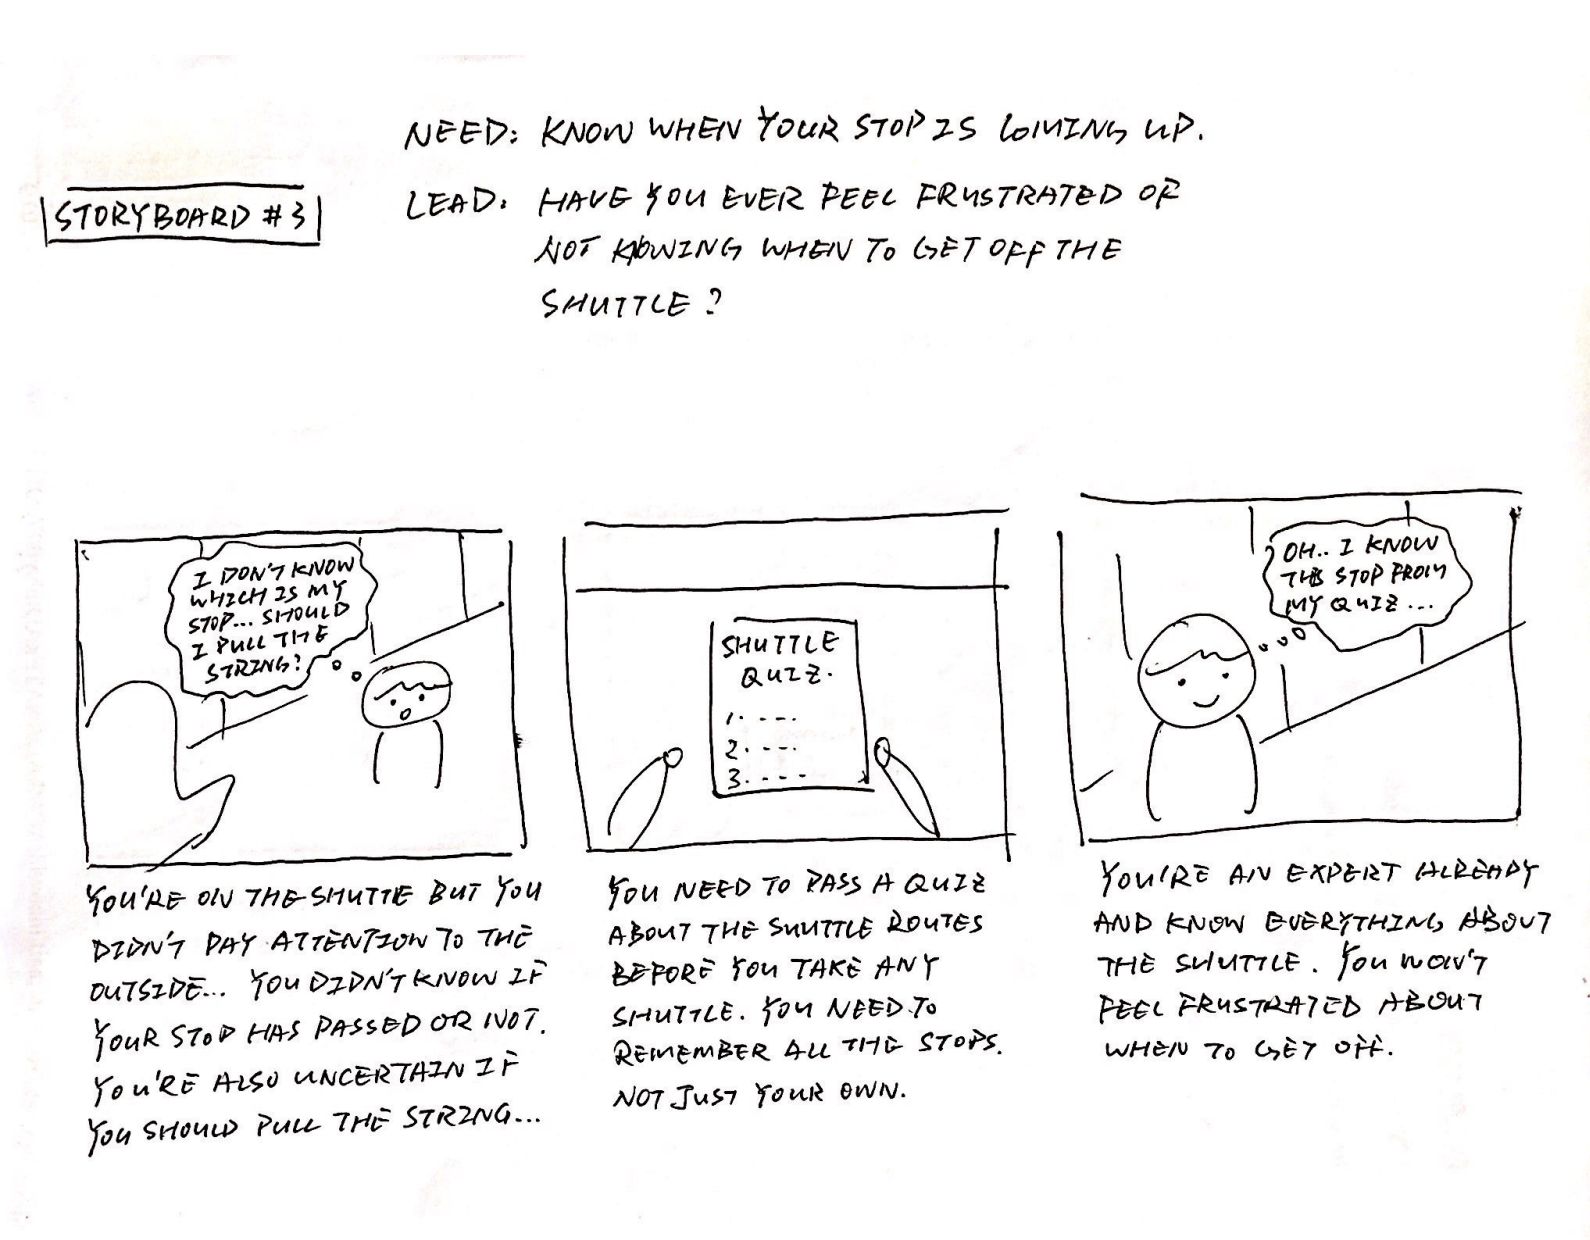 NEED: KNOW WHEN YOUR STOP IS COMING UP.
STORYBOARD #3
LEAD: HAVE YOU EVER FEEL FRUSTRATED OF
NOT KNOWING WHEN TO GET OFF THE
SHUTTLE?
I DON'T KNOW
WHICH IS MY
STOP... SHOULD
I PULL THE
STRING?
YOU'RE ON THE SHUTTLE BUT YOU
DIDN'T PAY ATTENTION TO THE
OUTSIDE... YOU DIDN'T KNOW IF
YOUR STOP HAS PASSED OR NOT.
YOU'RE ALSO UNCERTAIN IF
YOU SHOULD PULL THE STRING...
SHUTTLE
QUIZ.
1. - - -.
2. - - -.
3. - - - -
YOU NEED TO PASS A QUIZ
ABOUT THE SHUTTLE ROUTES
BEFORE YOU TAKE ANY
SHUTTLE. YOU NEED TO
REMEMBER ALL THE STOPS.
NOT JUST YOUR OWN.
OH.. I KNOW
THIS STOP FROM
MY QUIZ...
YOU'RE AN EXPERT ALREADY
AND KNOW EVERYTHING ABOUT
THE SHUTTLE. YOU WON'T
FEEL FRUSTRATED ABOUT
WHEN TO GET OFF.